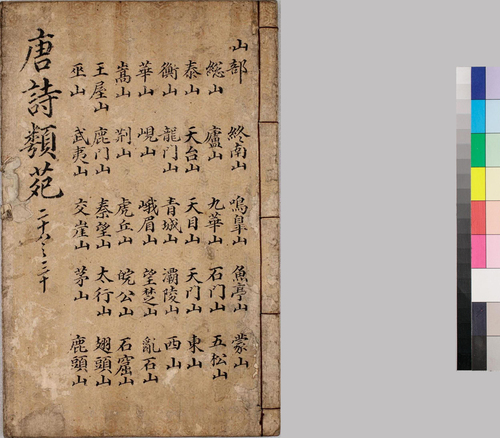 山部 終南山 鳴皐山 魚亭山 蒙山
総山 廬山 九華山 石門山 五松山
泰山 天台山 天目山 天門山 東山
衡山 龍門山 青城山 灞陵山 西山
華山 峴山 峨眉山 望楚山 亂石山
嵩山 荆山 虎丘山 皖公山 石窟山
王屋山 鹿門山 秦望山 太行山 翅頭山
巫山 武夷山 交崖山 茅山 鹿頭山
唐詩類苑